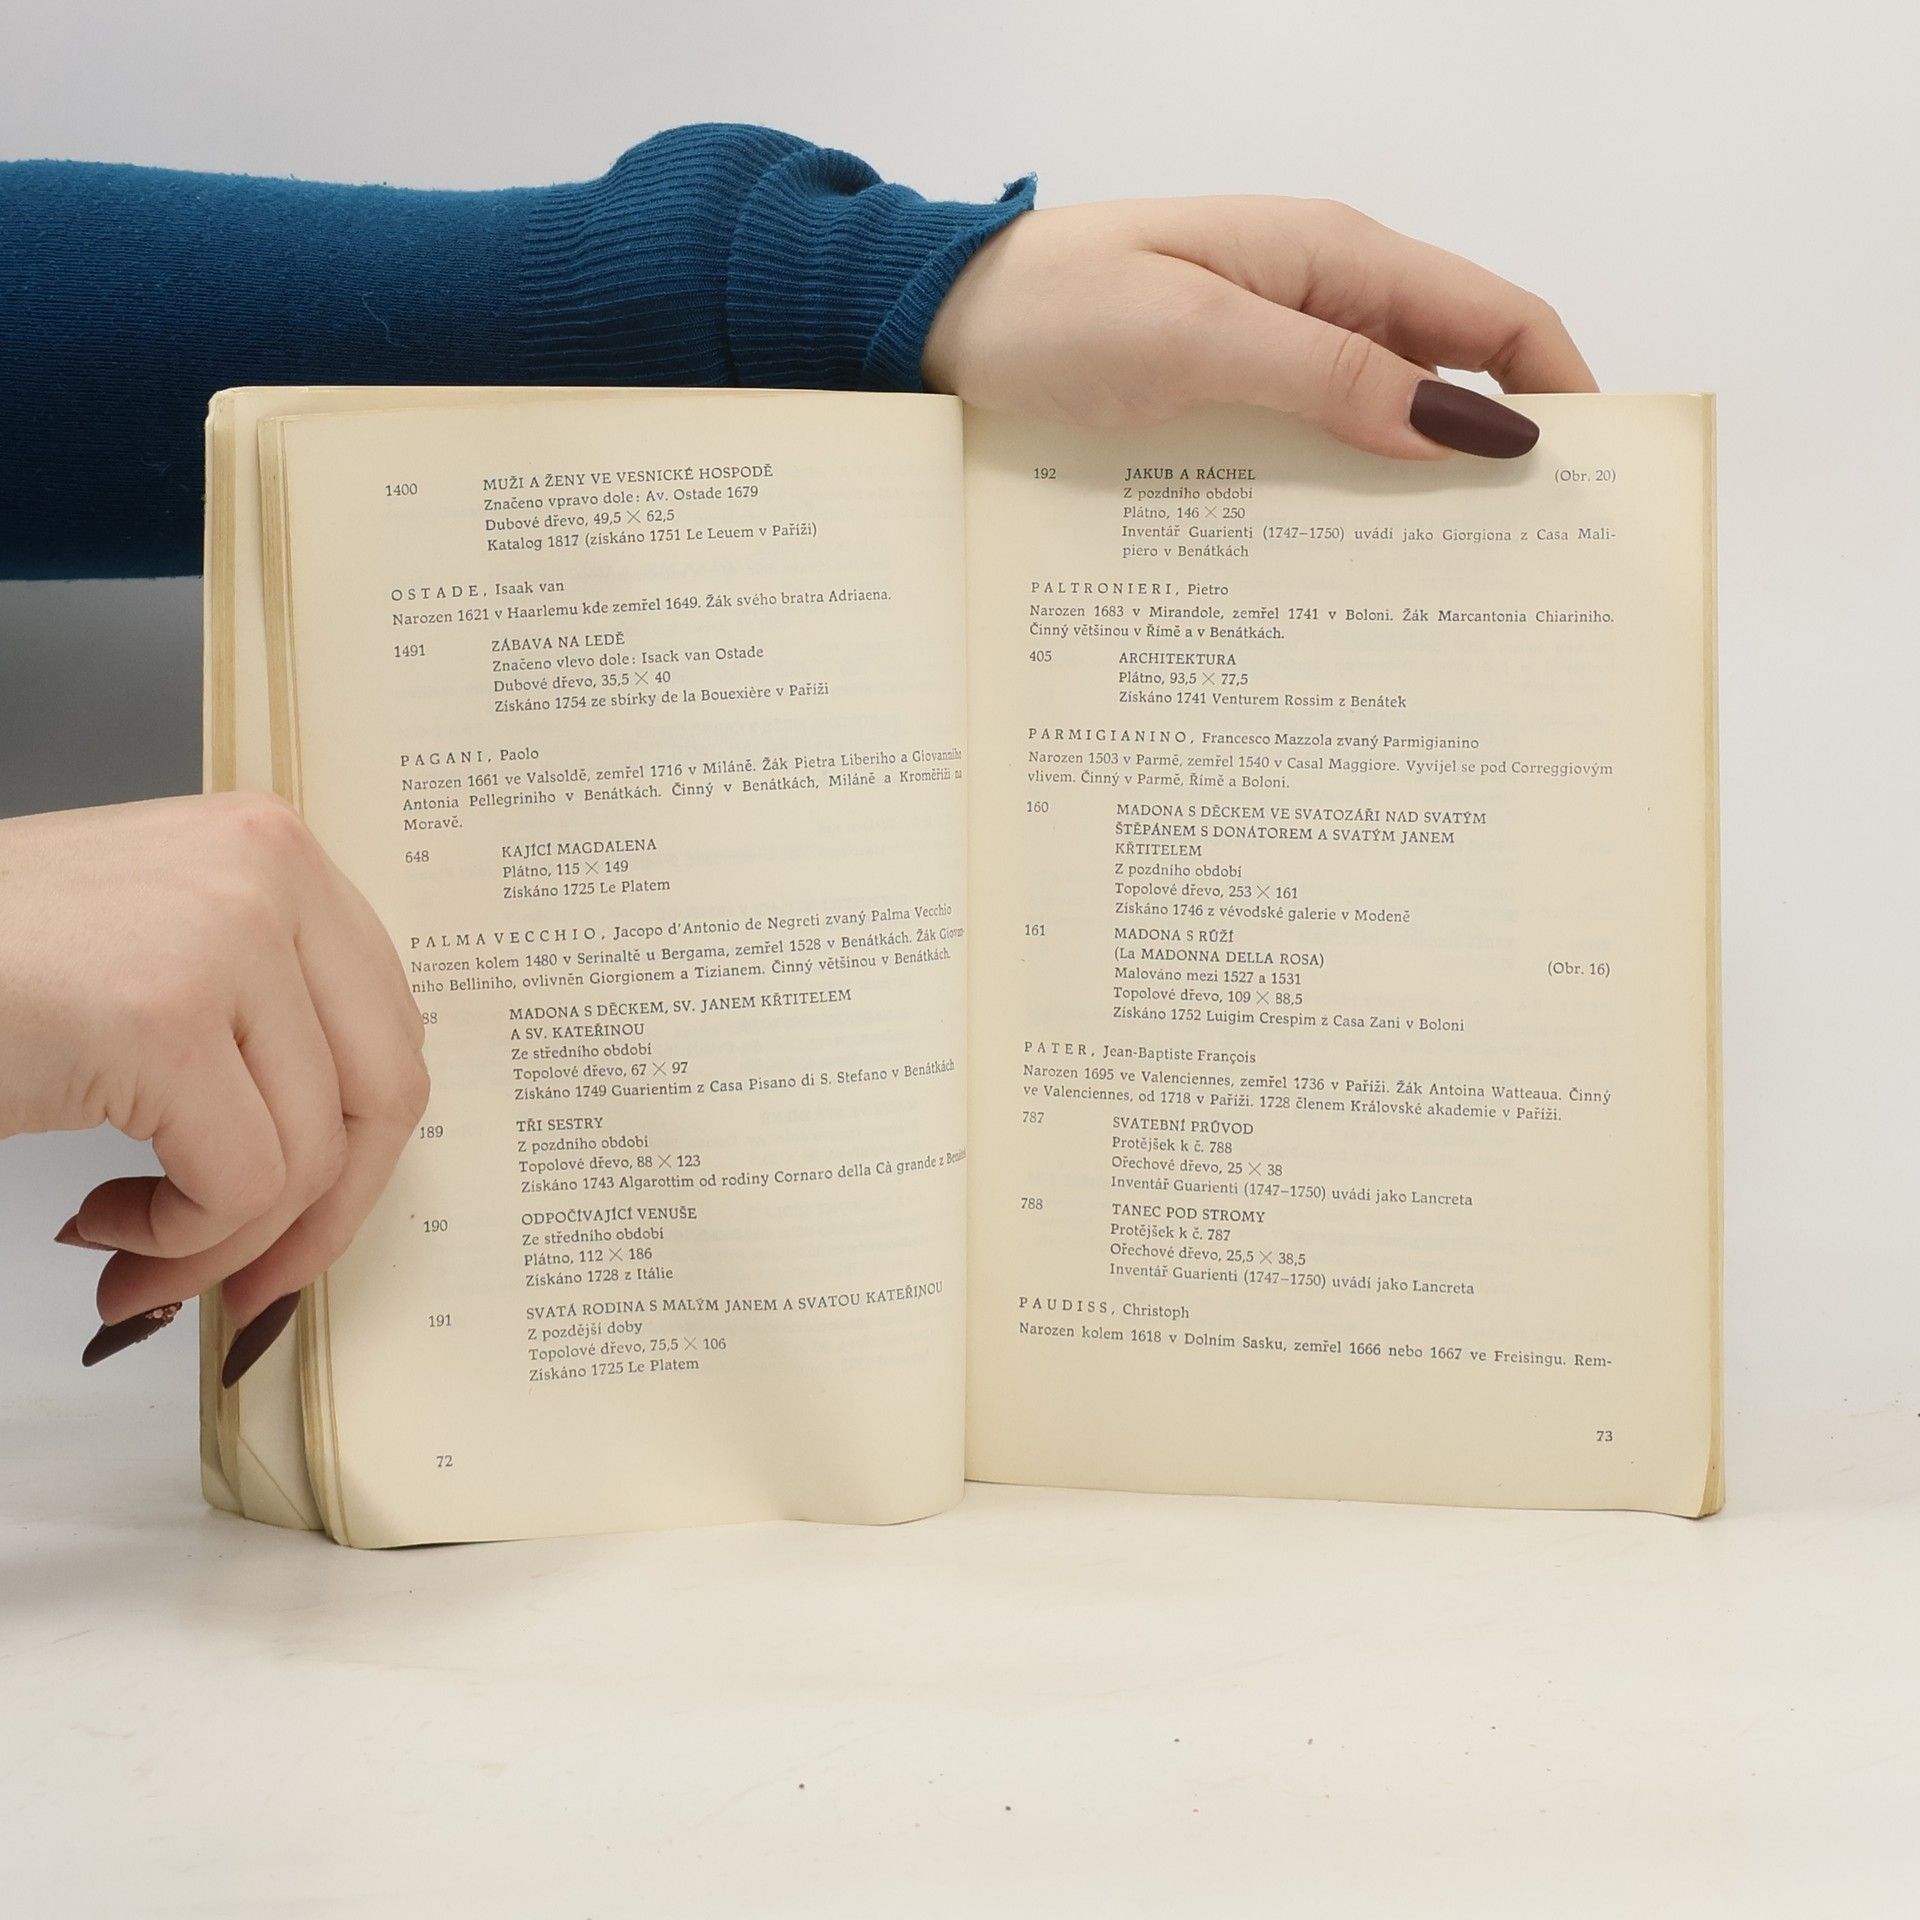 1400 MUŽI A ŽENY VE VESNICKÉ HOSPODĚ
Značeno vpravo dole: Av. Ostade 1679
Dubové dřevo, 49,5 × 62,5
Katalog 1817 (získáno 1751 Le Leuem v Paříži)
OSTADE, Isaak van
Narozen 1621 v Haarlemu kde zemřel 1649. Žák svého bratra Adriaena.
1491 ZÁBAVA NA LEDĚ
Značeno vlevo dole: Isack van Ostade
Dubové dřevo, 35,5 × 40
Získáno 1754 ze sbírky de la Bouexière v Paříži
PAGANI, Paolo
Narozen 1661 ve Valsoldě, zemřel 1716 v Miláně. Žák Pietra Liberiho a Giovanniho
Antonia Pellegriniho v Benátkách. Činný v Benátkách, Miláně a Kroměříži na
Moravě.
648 KAJÍCÍ MAGDALENA
Plátno, 115 × 149
Získáno 1725 Le Platem
PALMA VECCHIO, Jacopo d'Antonio de Negreti zvaný Palma Vecchio
Narozen kolem 1480 v Serinaltě u Bergama, zemřel 1528 v Benátkách. Žák Giovan-
niho Belliniho, ovlivněn Giorgionem a Tizianem. Činný většinou v Benátkách.
88 MADONA S DĚCKEM, SV. JANEM KŘTITELEM
A SV. KATEŘINOU
Ze středního období
Topolové dřevo, 67 × 97
Získáno 1749 Guarientim z Casa Pisano di S. Stefano v Benátkách
189 TŘI SESTRY
Z pozdního období
Topolové dřevo, 88 × 123
Získáno 1743 Algarottim od rodiny Cornaro della Cà grande z
190 ODPOČÍVAJÍCÍ VENUŠE
Ze středního období
Plátno, 112 × 186
Získáno 1728 z Itálie
191 SVATÁ RODINA S MALÝM JANEM A SVATOU KATEŘINOU
Z pozdější doby
Topolové dřevo, 75,5 × 106
Získáno 1725 Le Platem
72
192 JAKUB A RÁCHEL (Obr. 20)
Z pozdního období
Plátno, 146 × 250
Inventář Guarienti (1747–1750) uvádí jako Giorgiona z Casa Mali-
piero v Benátkách
PALTRONIERI, Pietro
Narozen 1683 v Mirandole, zemřel 1741 v Boloni. Žák Marcantonia Chiariniho.
Činný většinou v Římě a v Benátkách.
405 ARCHITEKTURA
Plátno, 93,5 × 77,5
Získáno 1741 Venturem Rossim z Benátek
PARMIGIANINO, Francesco Mazzola zvaný Parmigianino
Narozen 1503 v Parmě, zemřel 1540 v Casal Maggiore. Vyvíjel se pod Correggiovým
vlivem. Činný v Parmě, Římě a Boloni.
160 MADONA S DĚCKEM VE SVATOZÁŘI NAD SVATÝM
ŠTĚPÁNEM S DONÁTOREM A SVATÝM JANEM
KŘTITELEM
Z pozdního období
Topolové dřevo, 253 × 161
Získáno 1746 z vévodské galerie v Modeně
161 MADONA S RŮŽÍ
(La MADONNA DELLA ROSA) (Obr. 16)
Malováno mezi 1527 a 1531
Topolové dřevo, 109 × 88,5
Získáno 1752 Luigim Crespim z Casa Zani v Boloni
PATER, Jean-Baptiste François
Narozen 1695 ve Valenciennes, zemřel 1736 v Paříži. Žák Antoina Watteaua. Činný
ve Valenciennes, od 1718 v Paříži. 1728 členem Královské akademie v Paříži.
787 SVATEBNÍ PRŮVOD
Protějšek k č. 788
Ořechové dřevo, 25 × 38
Inventář Guarienti (1747–1750) uvádí jako Lancreta
788 TANEC POD STROMY
Protějšek k č. 787
Ořechové dřevo, 25,5 × 38,5
Inventář Guarienti (1747–1750) uvádí jako Lancreta
PAUDISS, Christoph
Narozen kolem 1618 v Dolním Sasku, zemřel 1666 nebo 1667 ve Freisingu. Rem-
73